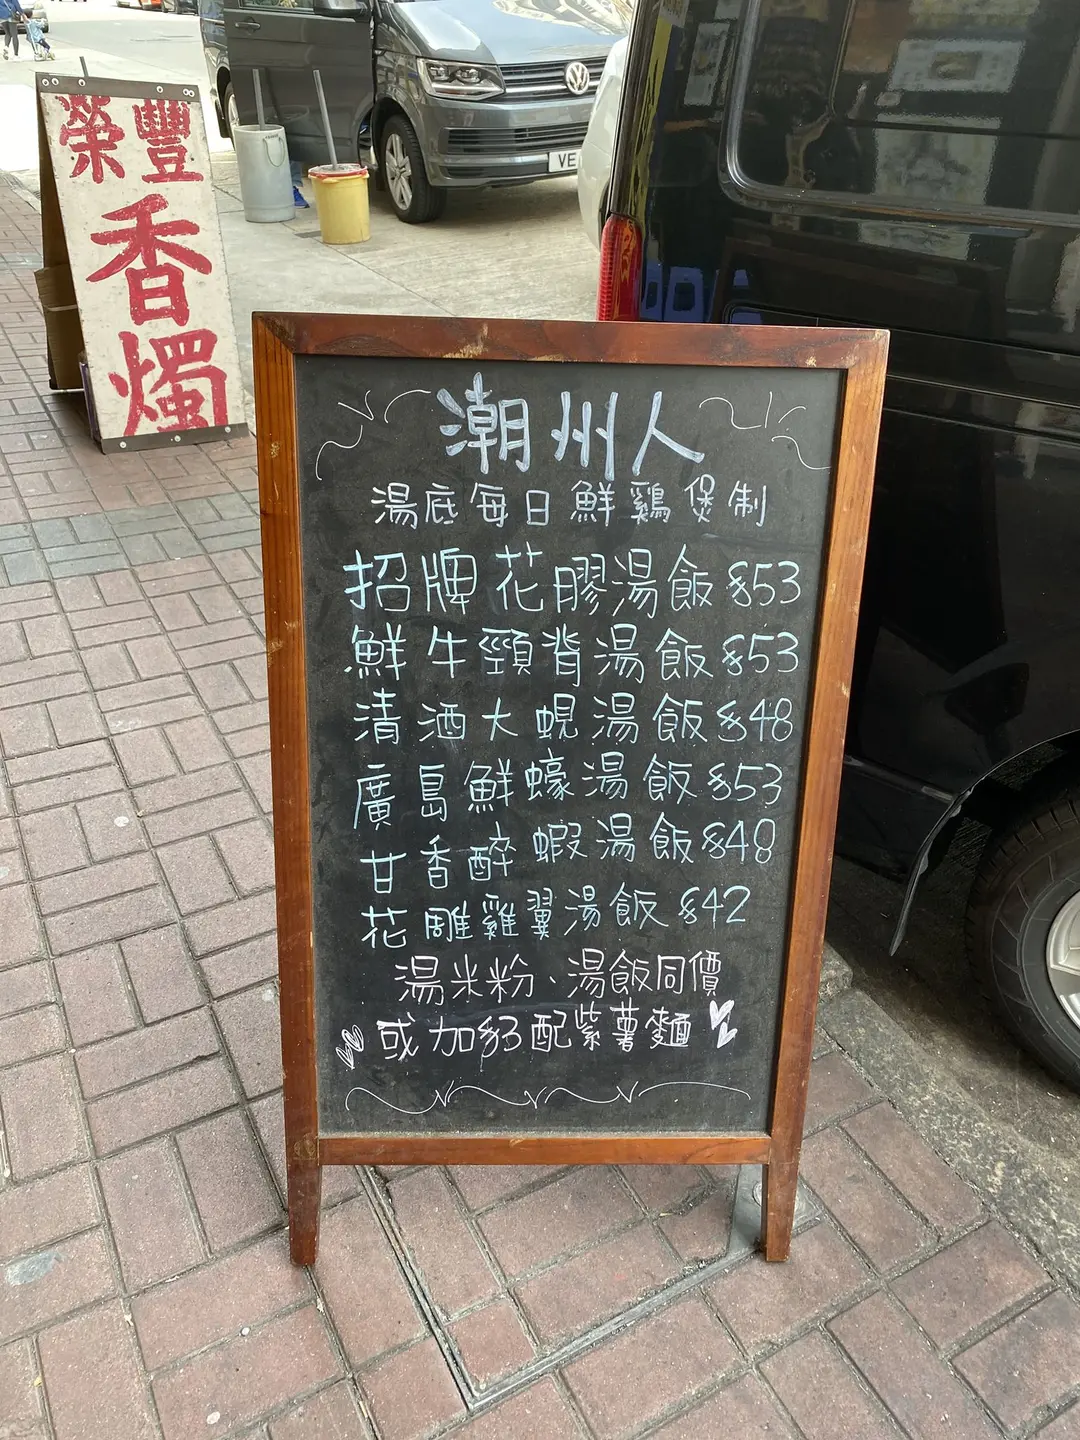 榮豐
香
燭
VE
潮州人
湯底每日鮮鷄煲制
招牌花膠湯飯$53
鮮牛頸脊湯飯$53
清酒大蜆湯飯$48
廣島鮮蠔湯飯$53
甘香醉蝦湯飯$48
花雕雞翼湯飯$42
湯米粉、湯飯同價
或加$3配紫薯麵